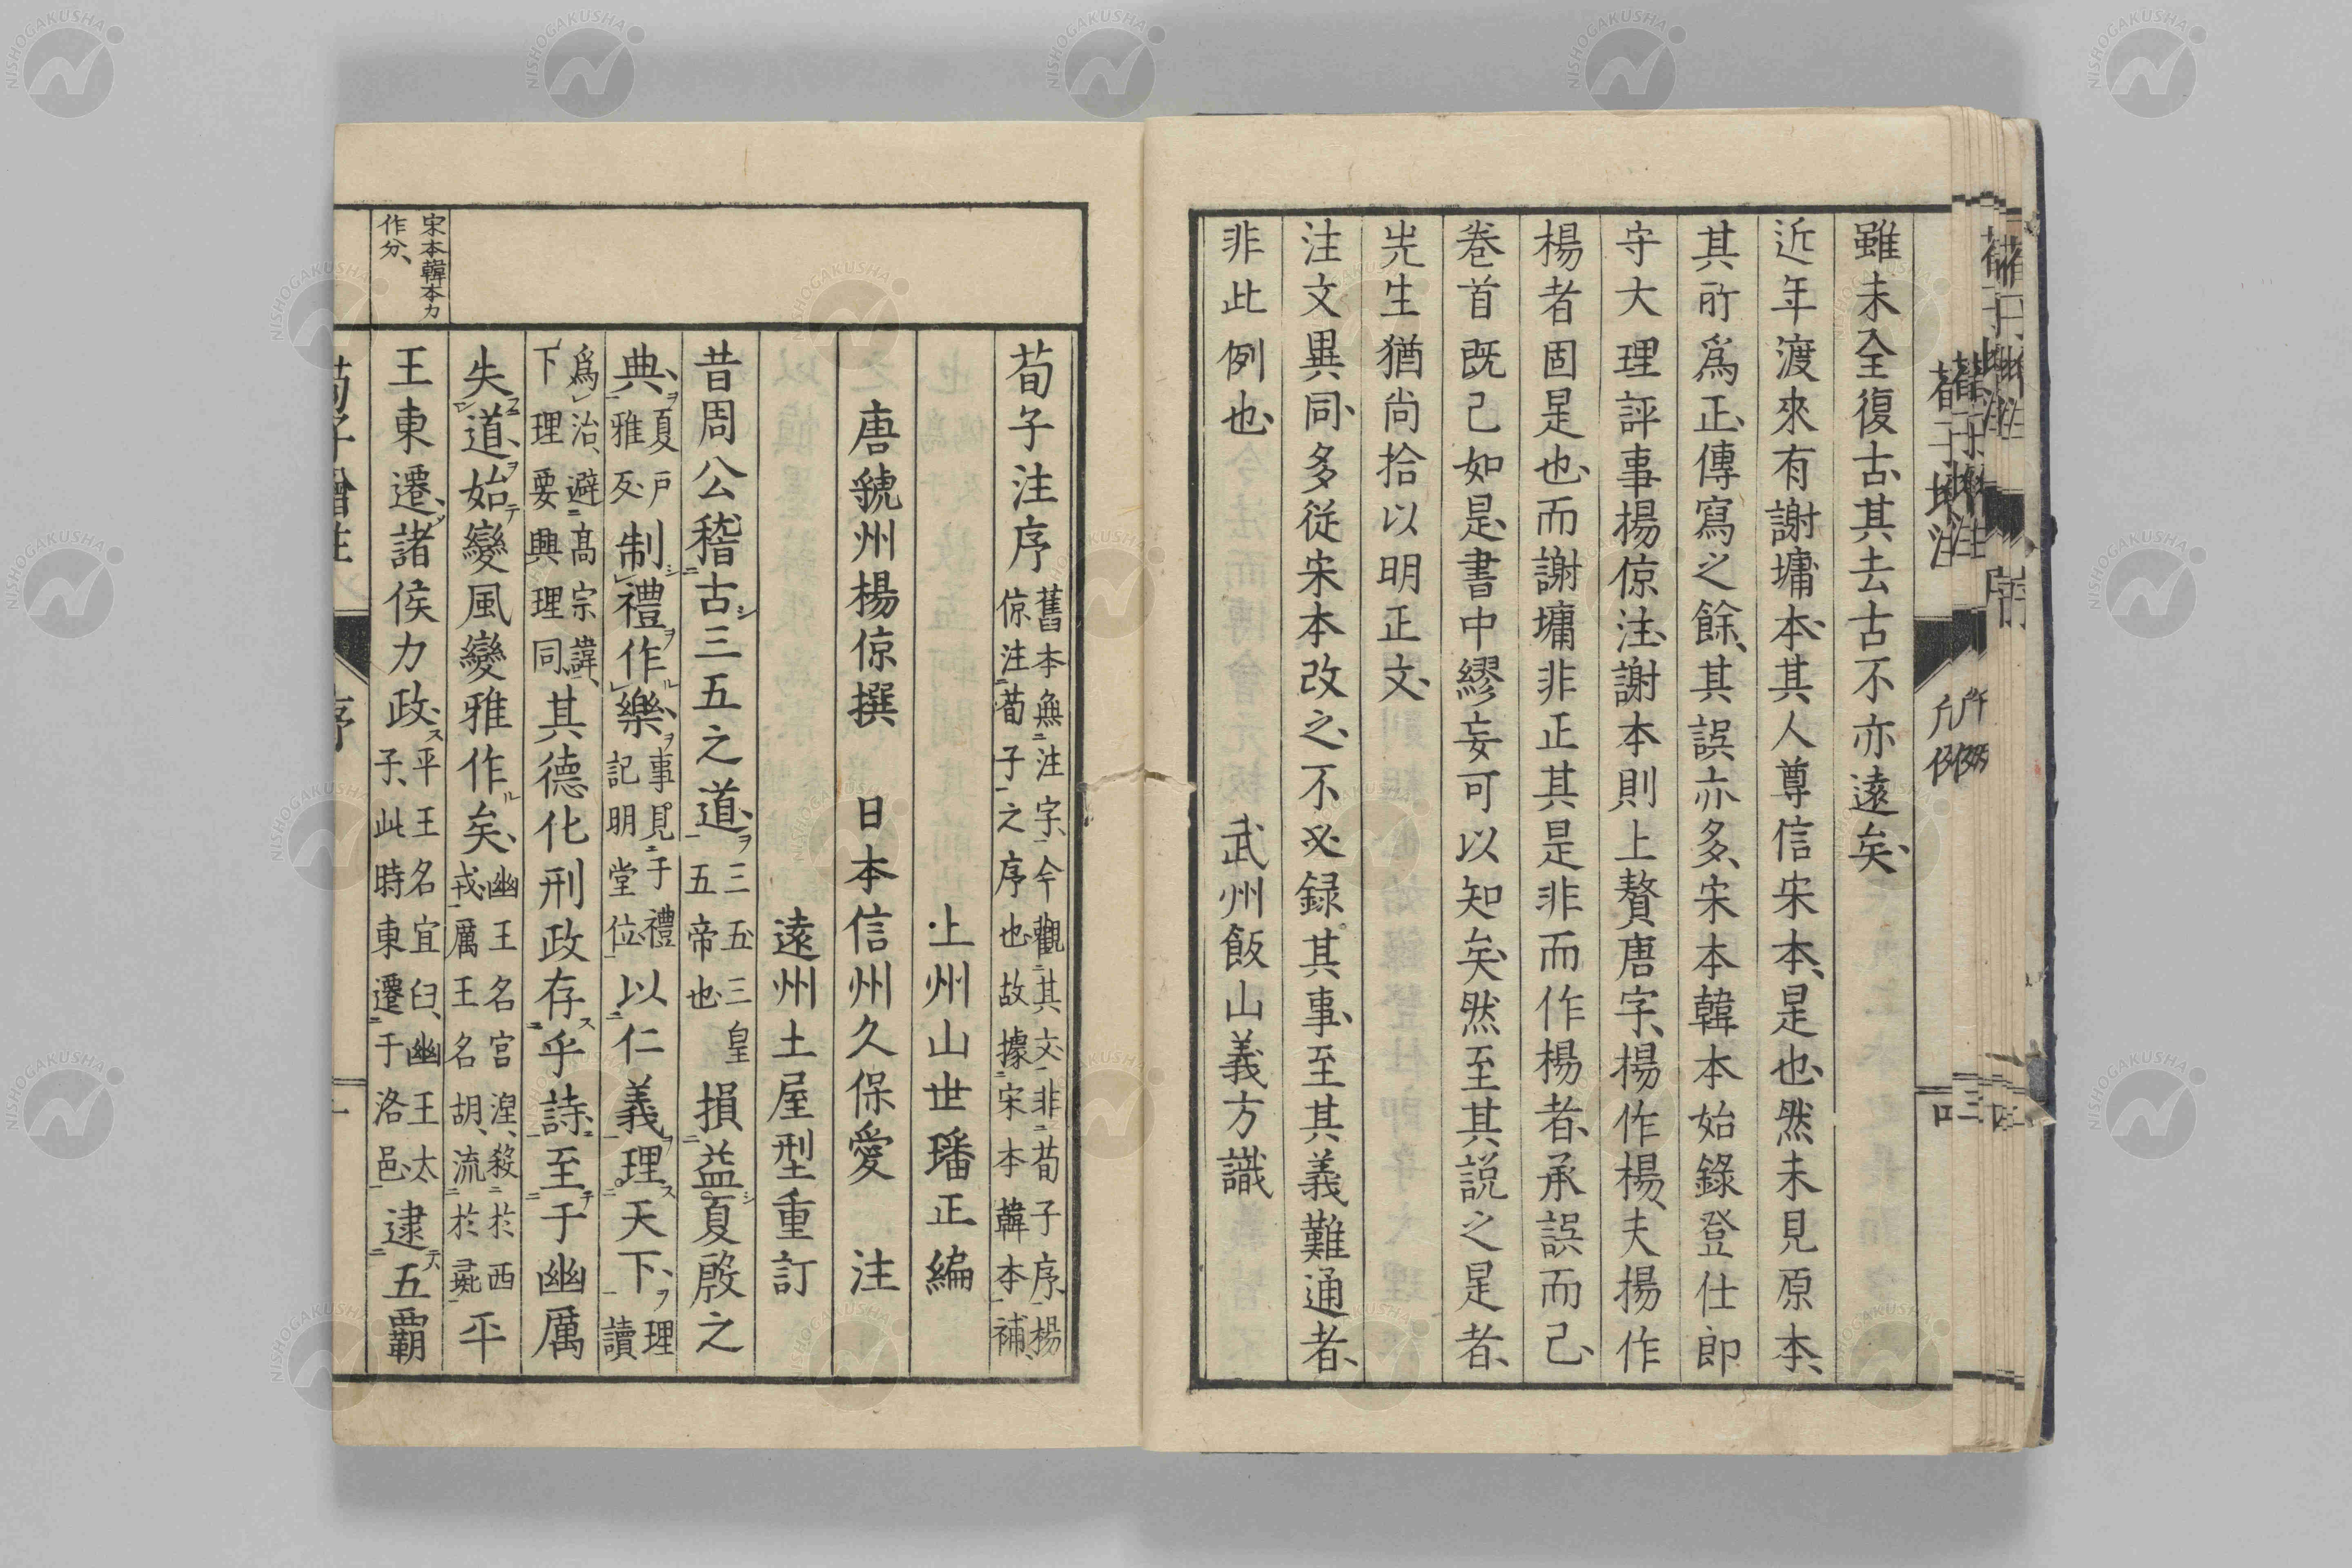 雖未全復古、其去古不亦遠矣、
近年渡來有謝墉本、其人尊信宋本、是也、然未見原本、
其所爲正、傳寫之餘、其誤亦多、宋本韓本始錄登仕郎
守大理評事楊倞注、謝本則上贅唐字、揚作楊、夫揚作
楊者固是也、而謝墉非正其是非而作楊者、承誤而已、
卷首既已如是、書中繆妄可以知矣、然至其説之是者、
先生猶尚拾以明正文、
注文異同、多從宋本改之、不必録其事、至其義難通者、
非此例也、 武州飯山義方識
荀子注序 舊本無注字、今觀其文、非荀子序、楊
倞注荀子之序也、故據宋本韓本補、
上州山世璠正編
唐虢州楊倞撰 日本信州久保愛 注
遠州土屋型重訂
昔周公稽古三五之道、 三五三皇
五帝也、 損益夏殷之
典、 夏戸
雅反、 制禮作樂、 事見于禮
記明堂位、 以仁義理天下、 理讀
爲治、避高宗諱、
下理要興理同、 其德化刑政存乎詩、至于幽厲
失道、始變風變雅作矣、 幽王名宮湼、殺於西
戎、厲王名胡、流於彘、 平
王東遷、諸侯力政、 平王名宜臼、幽王太
子、此時東遷于洛邑、 逮五覇
宋本韓本力
作分、